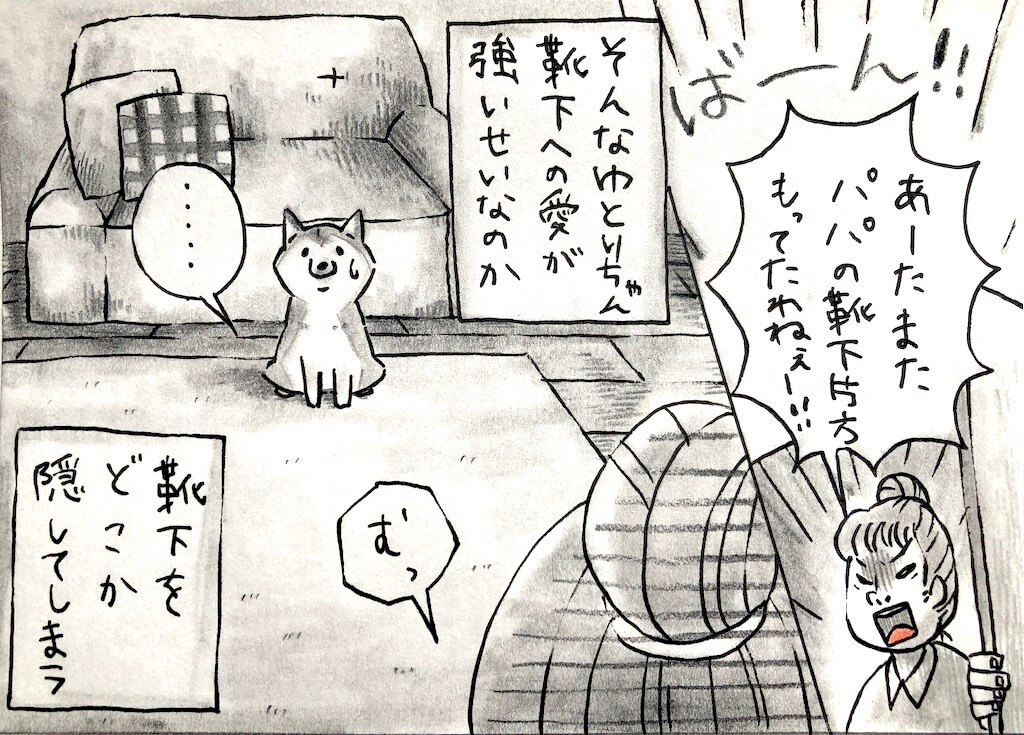 ばーん!!
あーたまた
パパの靴下片方
もってたわねぇー!!
そんなゆとりちゃん
靴下への愛が
強いせいなのか
・・・・・
むっ
靴下を
どこか
隠してしまう